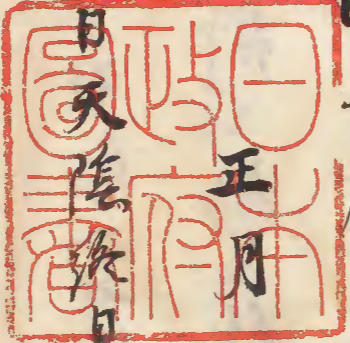 日本
政府
圖書
正月
日天陰終日